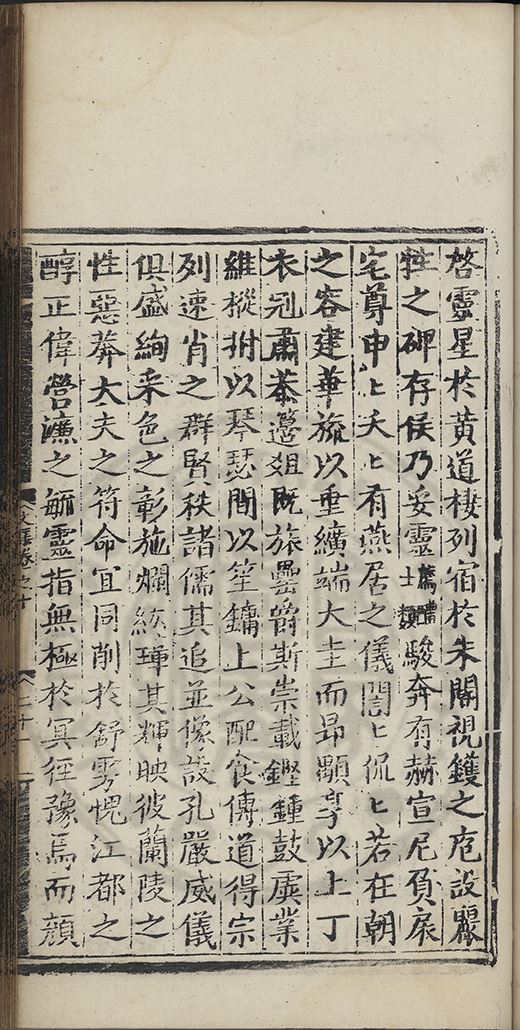 啓靈星於黃道棲列宿於朱閣視鑊之庖設麗
牲之碑存侯乃妥靈士類驂驔駿奔有赫宣尼負扆
宅尊申〻夭〻有燕居之儀誾〻侃〻若在朝
之容建華旒以垂纊端大圭而昻顒享以上丁
衣冠肅恭籩俎既旅罍爵斯崇載鏗鍾鼓虡業
維樅拊以琴瑟間以笙鏞上公配食傳道得宗
列逮肖之群賢秩諸儒其追並像設孔嚴威儀
俱盛絢采色之彰施爛紘琫其輝映彼蘭陵之
性惡莽大夫之符命宜同削於舒雱愧江都之
醇正偉營濂之毓靈指無極於冥徑豫焉而顔
卷之十
三十一